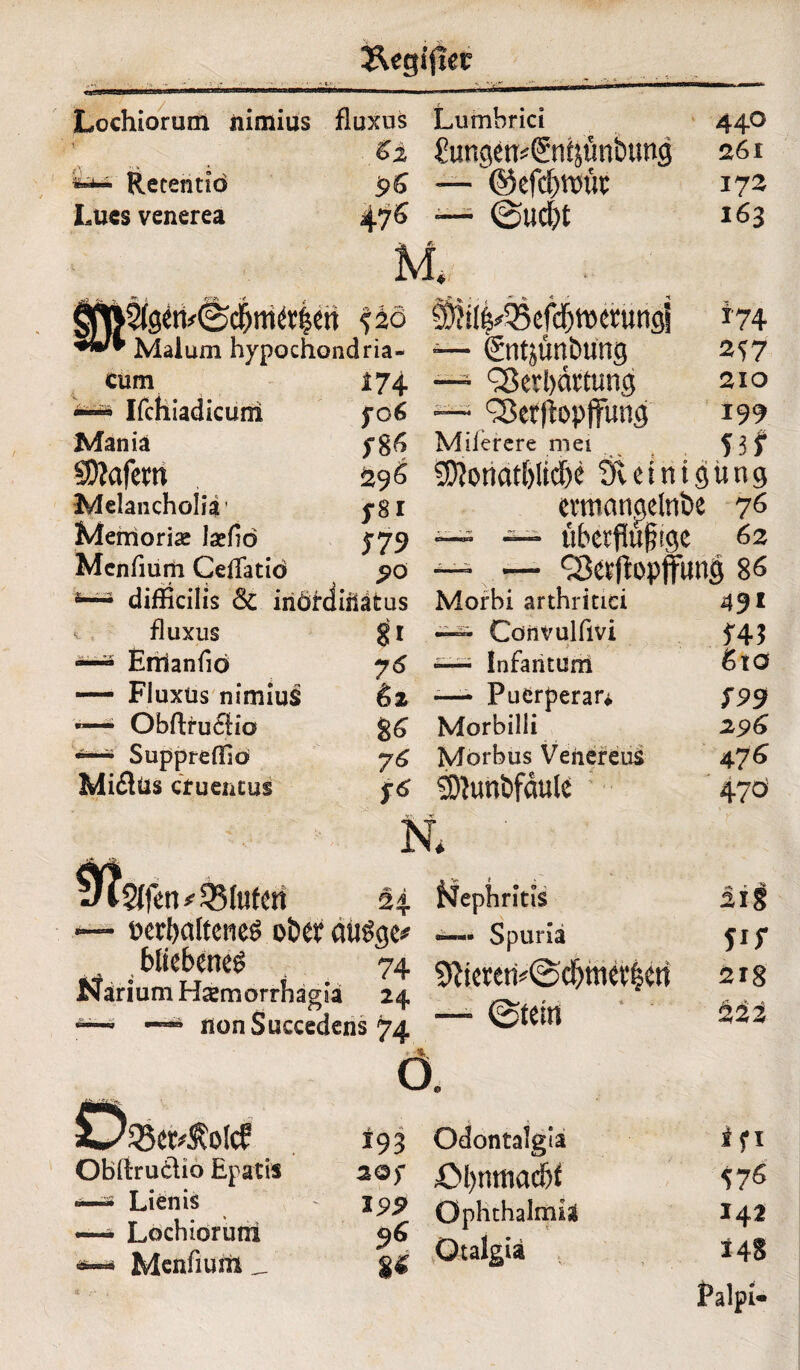 Register
Lochiorum nimius fluxus
62
— Retentio 96
Lues venerea 476
Lumbrici 440
Lungen-Entzündung 261
— Geschwür 172
— Sucht 163
M.
MAgen-Schmertzen 520
Malum hypochondria-
cum 174
— Iſchiadicum 506
Mania 586
Masern 296
Melancholia 581
Memoriæ læſio 579
Menſium Ceſſatio 90
— difficilis & inordinatus
fluxus 81
— Emanſio 76
— Fluxus nimius 62
— Obſtructio 86
— Suppreſſio 76
Mictus cruentus 56
Miltz-Beschwerung 174
— Entzündung 257
— Verhärtung 210
— Verstopffung 199
Miſerere mei 535
Monathliche Reinigung
ermangelnde 76
— — überflüßige 62
— — Verstopffung 86
Morbi arthritici 491
— Convulſivi 543
— Infantum 610
— Puerperar. 599
Morbilli 296
Morbus Venereus 476
Mundfäule 470
N.
NAsen-Bluten 24
— verhaltenes oder ausge-
bliebenes 74
Narium Hæmorrhagia 24
— — non Succedens 74
Nephritis 218
— Spuria 515
Nieren-Schmertzen 218
— Stein 222
O.
OBer-Kolck 193
Obſtructio Epatis 205
— Lienis 199
— Lochiorum 96
— Menſium 86
Odontalgia 151
Ohnmacht 576
Ophthalmia 142
Otalgia 148
Palpi-